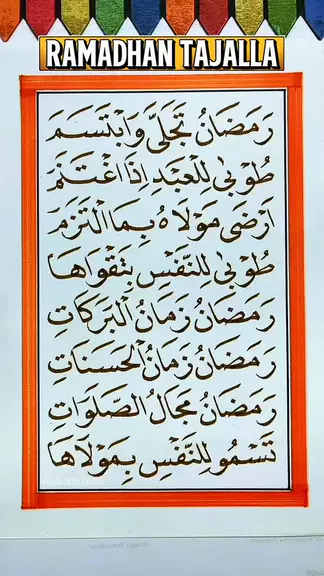 RAMADHAN TAJALLA
رَمَضَانُ تَجَلَّى وَابْتَسَمَ
طُوْبَى لِلْعَبْدِ اِذَا اغْتَنَمَ
اَرْضَى مَوْلَاهُ بِمَا الْتَزَمَ
طُوْبَى لِلنَّفْسِ بِتَقْوَاهَا
رَمَضَانُ زَمَانُ الْبَرَكَاتِ
رَمَضَانُ زَمَانُ الْحَسَنَاتِ
رَمَضَانُ مَجَالُ الصَّلَوَاتِ
تَسْمُو لِلنَّفْسِ بِمَوْلَاهَا